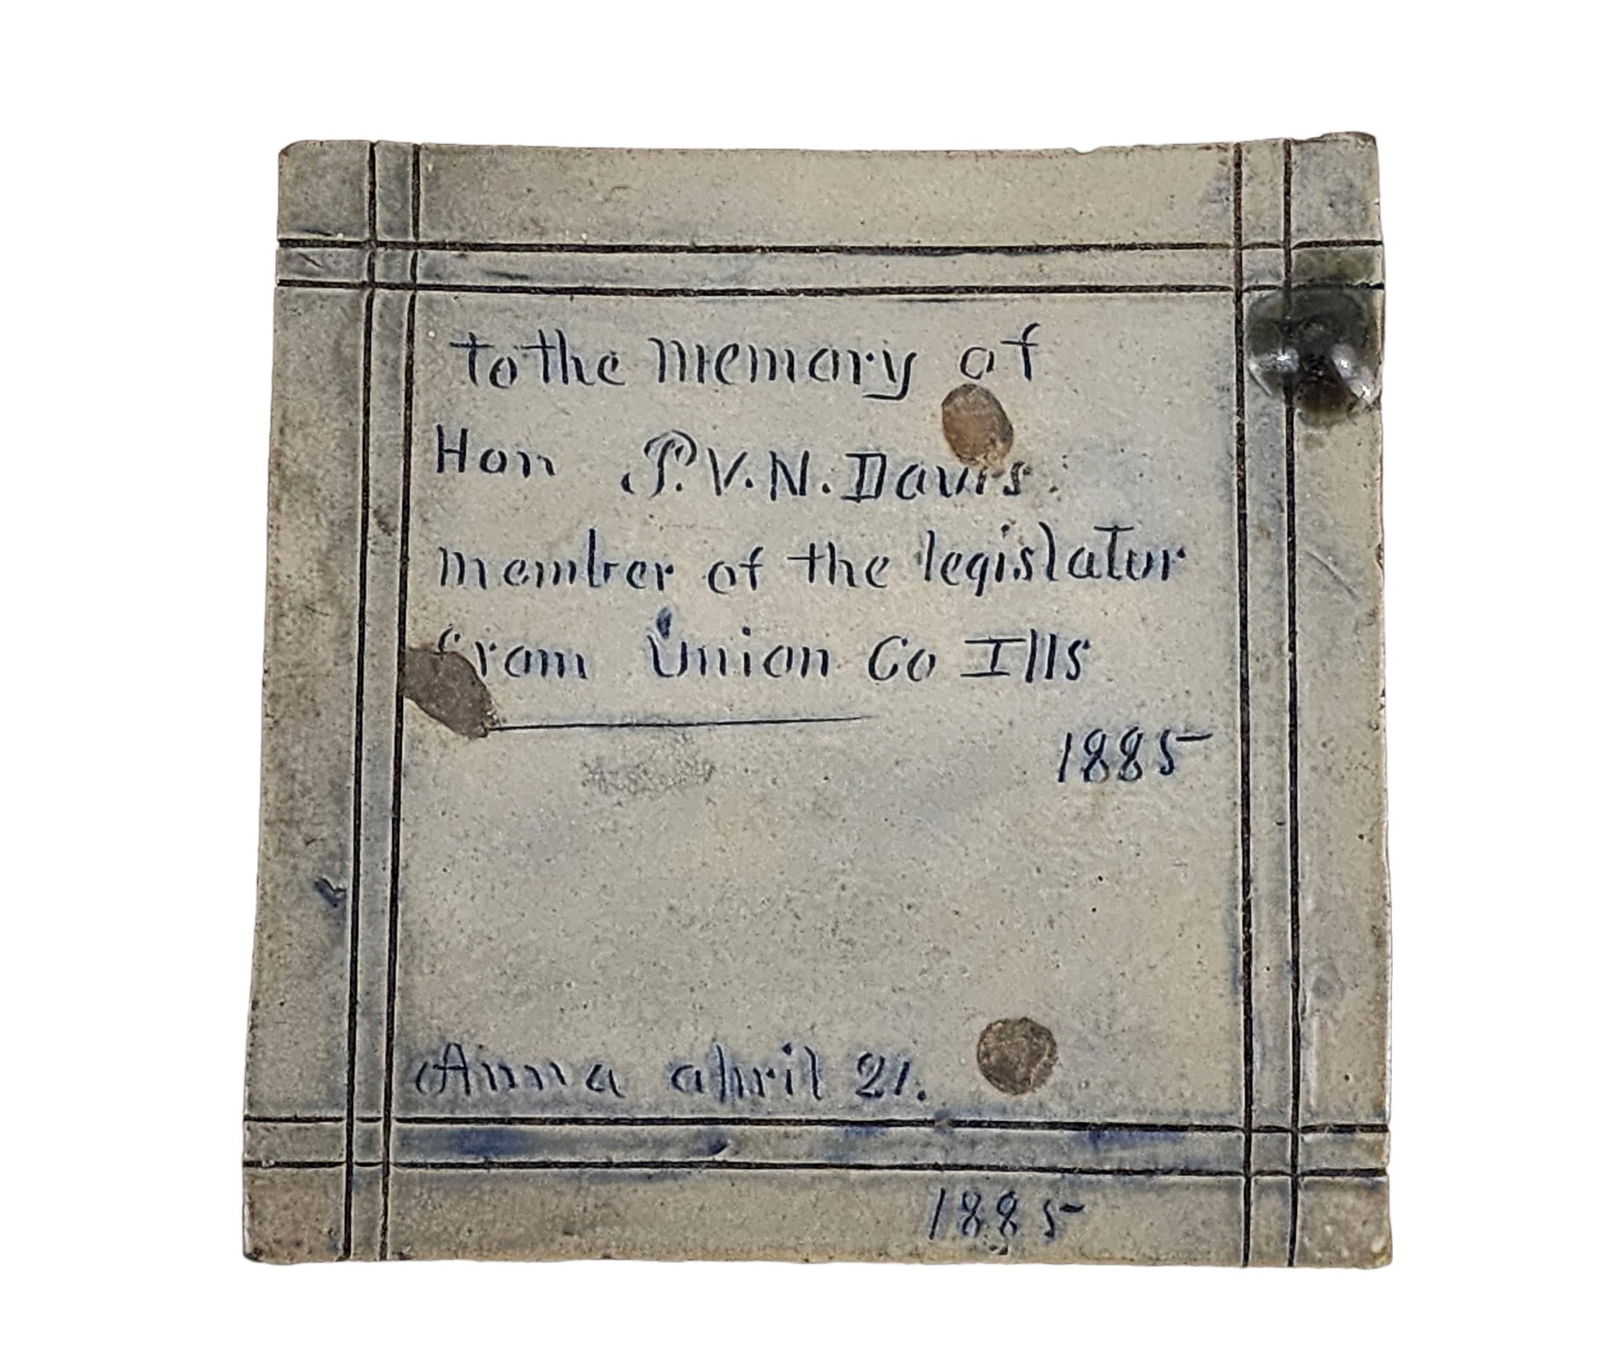 to the memory of
Hon P.V.N. Davis.
member of the legislatur
from Union Co Ills
1885
Anna april 21.
1885